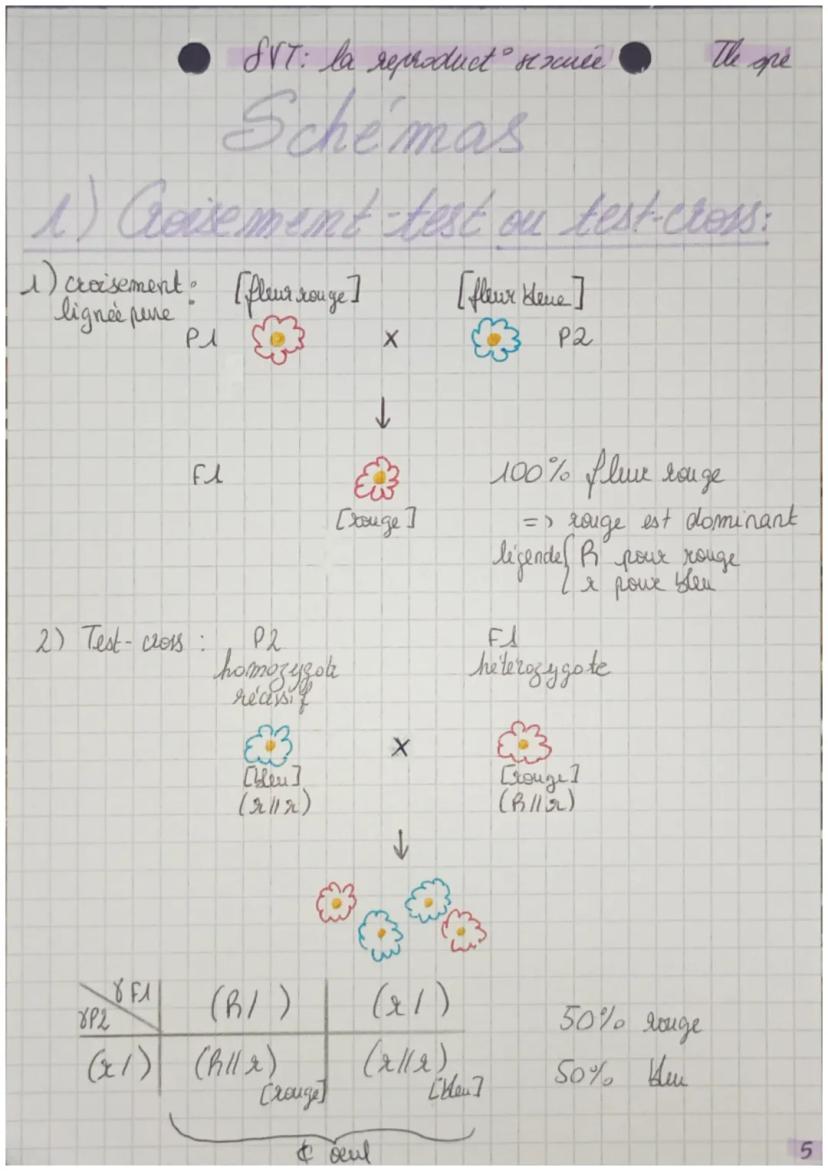 SVT: la reproduct° sexuée Tle spé
Schémas
1) Croisement-test ou test-cross:
1) croisement : [fleur rouge] [fleur bleue]
lignée pure
P1 x P2
↓
F1 100% fleur rouge
[rouge] => rouge est dominant
légende { R pour rouge
r pour bleu
2) Test-cross : P2 F1
homozygote hétérozygote
récessif
x
[bleu] [rouge]
(r//r) (R//r)
↓
γF1 (R/ ) (r/ )
γP2
50% rouge
(r/) (R//r) (r//r) 50% bleu
[rouge] [bleu]
¢ oeuf
5